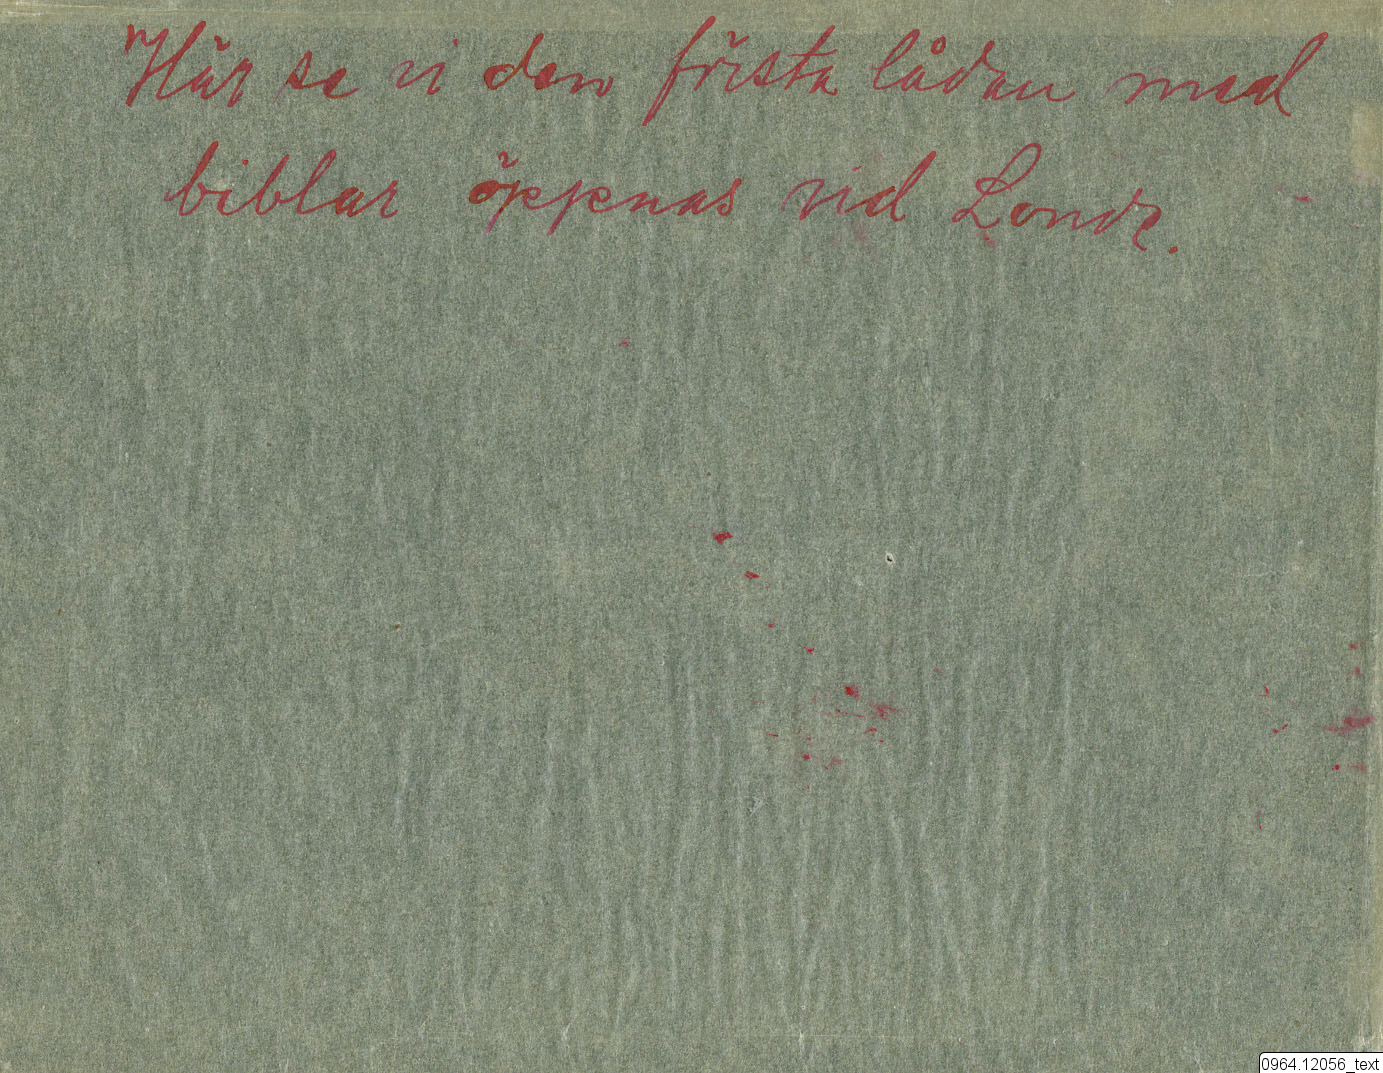 Här se vi den första lådan med
biblar öppnas vid Londe.
0964.12056_text